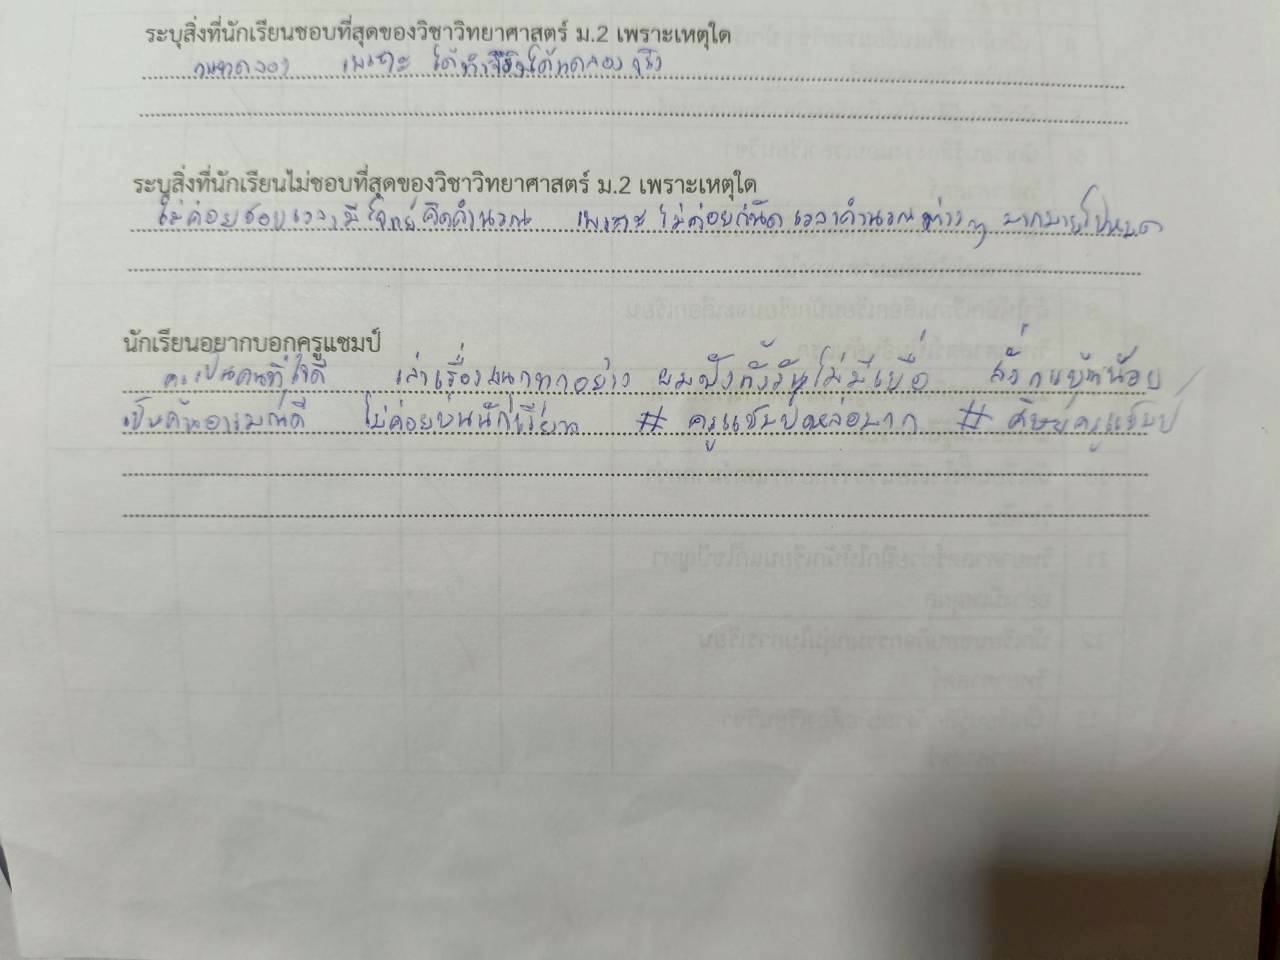 ระบุสิ่งที่นักเรียนชอบที่สุดของวิชาวิทยาศาสตร์ ม.2 เพราะเหตุใด
เพราะ ได้ทำจริงได้ทดลองจริง
ระบุสิ่งที่นักเรียนไม่ชอบที่สุดของวิชาวิทยาศาสตร์ ม.2 เพราะเหตุใด
ไม่ค่อยชอบเวลามีโจทย์คิดคำนวณ เพราะ ไม่ค่อยถนัด เวลาคำนวณ ต่างๆ มากมายไปหมด
นักเรียนอยากบอกครูแชมป์
ครูเป็นคนที่ใจดี เล่าเรื่องสนุกทุกอย่าง ผมฟังทั้งวันไม่มีเบื่อ สั่งการบ้านน้อย
เป็นคนอารมณ์ดี ไม่ค่อยบ่นนักเรียน # ครูแชมป์หล่อมาก # ศิษย์ครูแชมป์